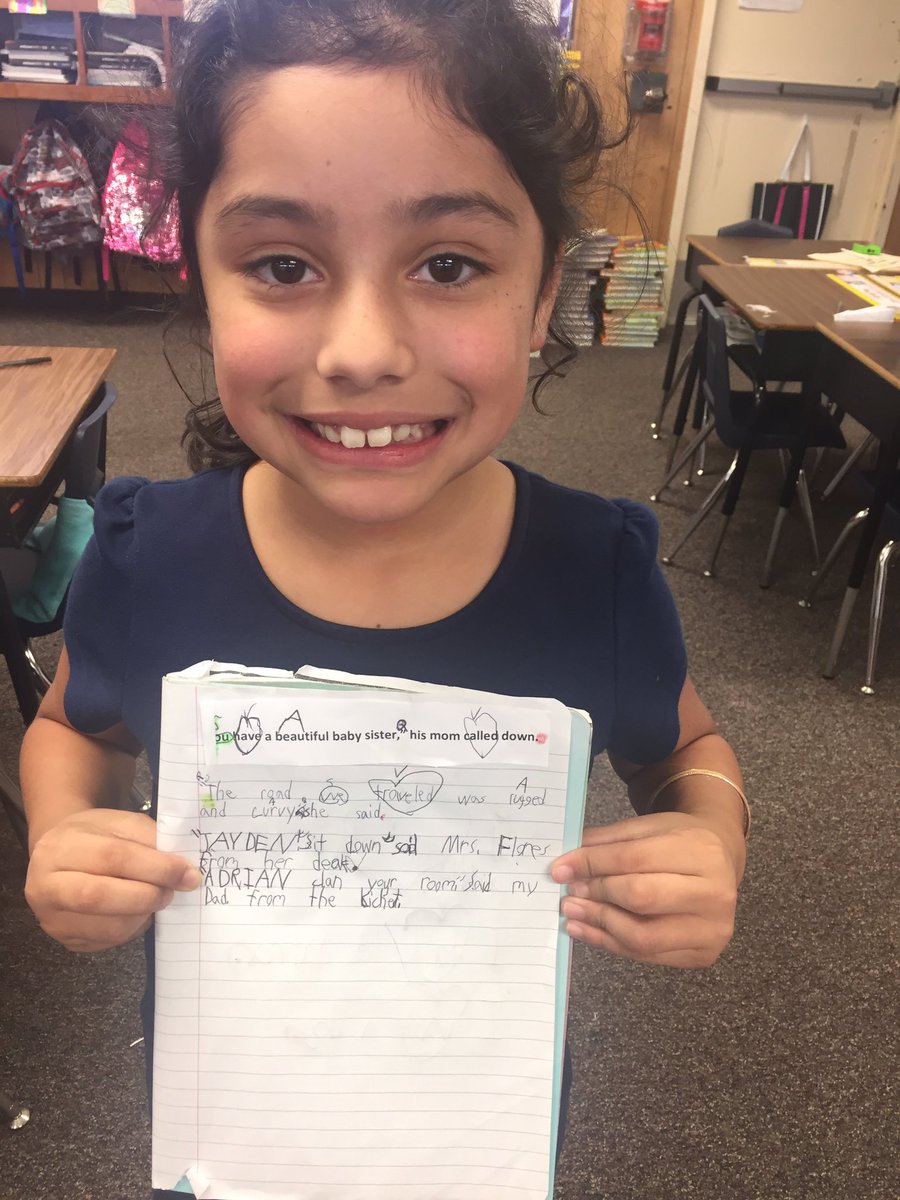 ou have a beautiful baby sister," his mom called down.
"The road we traveled was rugged
and curvy" she said.
"JAYDEN" sit down" said Mrs. Flores
from her deak.
"ADRIAN clan your room" said my
Dad from the kichet.